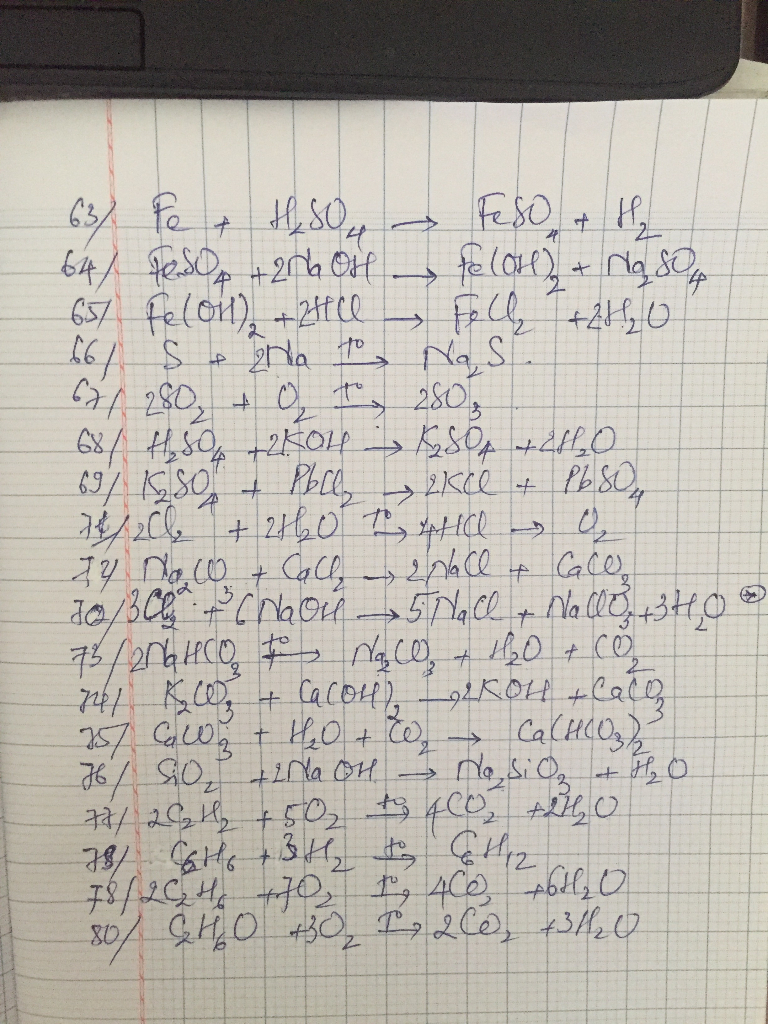 63/ Fe + H₂SO₄ → FeSO₄ + H₂
64/ FeSO₄ + 2NaOH → Fe(OH)₂ + Na₂SO₄
65/ Fe(OH)₂ + 2HCl → FeCl₂ + 2H₂O
66/ S + 2Na t° → Na₂S.
67/ 2SO₂ + O₂ t° → 2SO₃
68/ H₂SO₄ + 2KOH → K₂SO₄ + 2H₂O
69/ K₂SO₄ + PbCl₂ → 2KCl + PbSO₄
71/ 2Cl₂ + 2H₂O t° → 4HCl → O₂
72/ Na₂CO₃ + CaCl₂ → 2NaCl + CaCO₃
70/ 3Cl₂ + 6NaOH → 5NaCl + NaClO₃ + 3H₂O
73/ 2NaHCO₃ t° → Na₂CO₃ + H₂O + CO₂
74/ K₂CO₃ + Ca(OH)₂ → 2KOH + CaCO₃
75/ CaCO₃ + H₂O + CO₂ → Ca(HCO₃)₂
76/ SiO₂ + 2NaOH → Na₂SiO₃ + H₂O
77/ 2C₂H₂ + 5O₂ t° → 4CO₂ + 2H₂O
79/ C₆H₆ + 3H₂ t° → C₆H₁₂
78/ 2C₂H₆ + 7O₂ t° → 4CO₂ + 6H₂O
80/ C₂H₆O + 3O₂ t° → 2CO₂ + 3H₂O